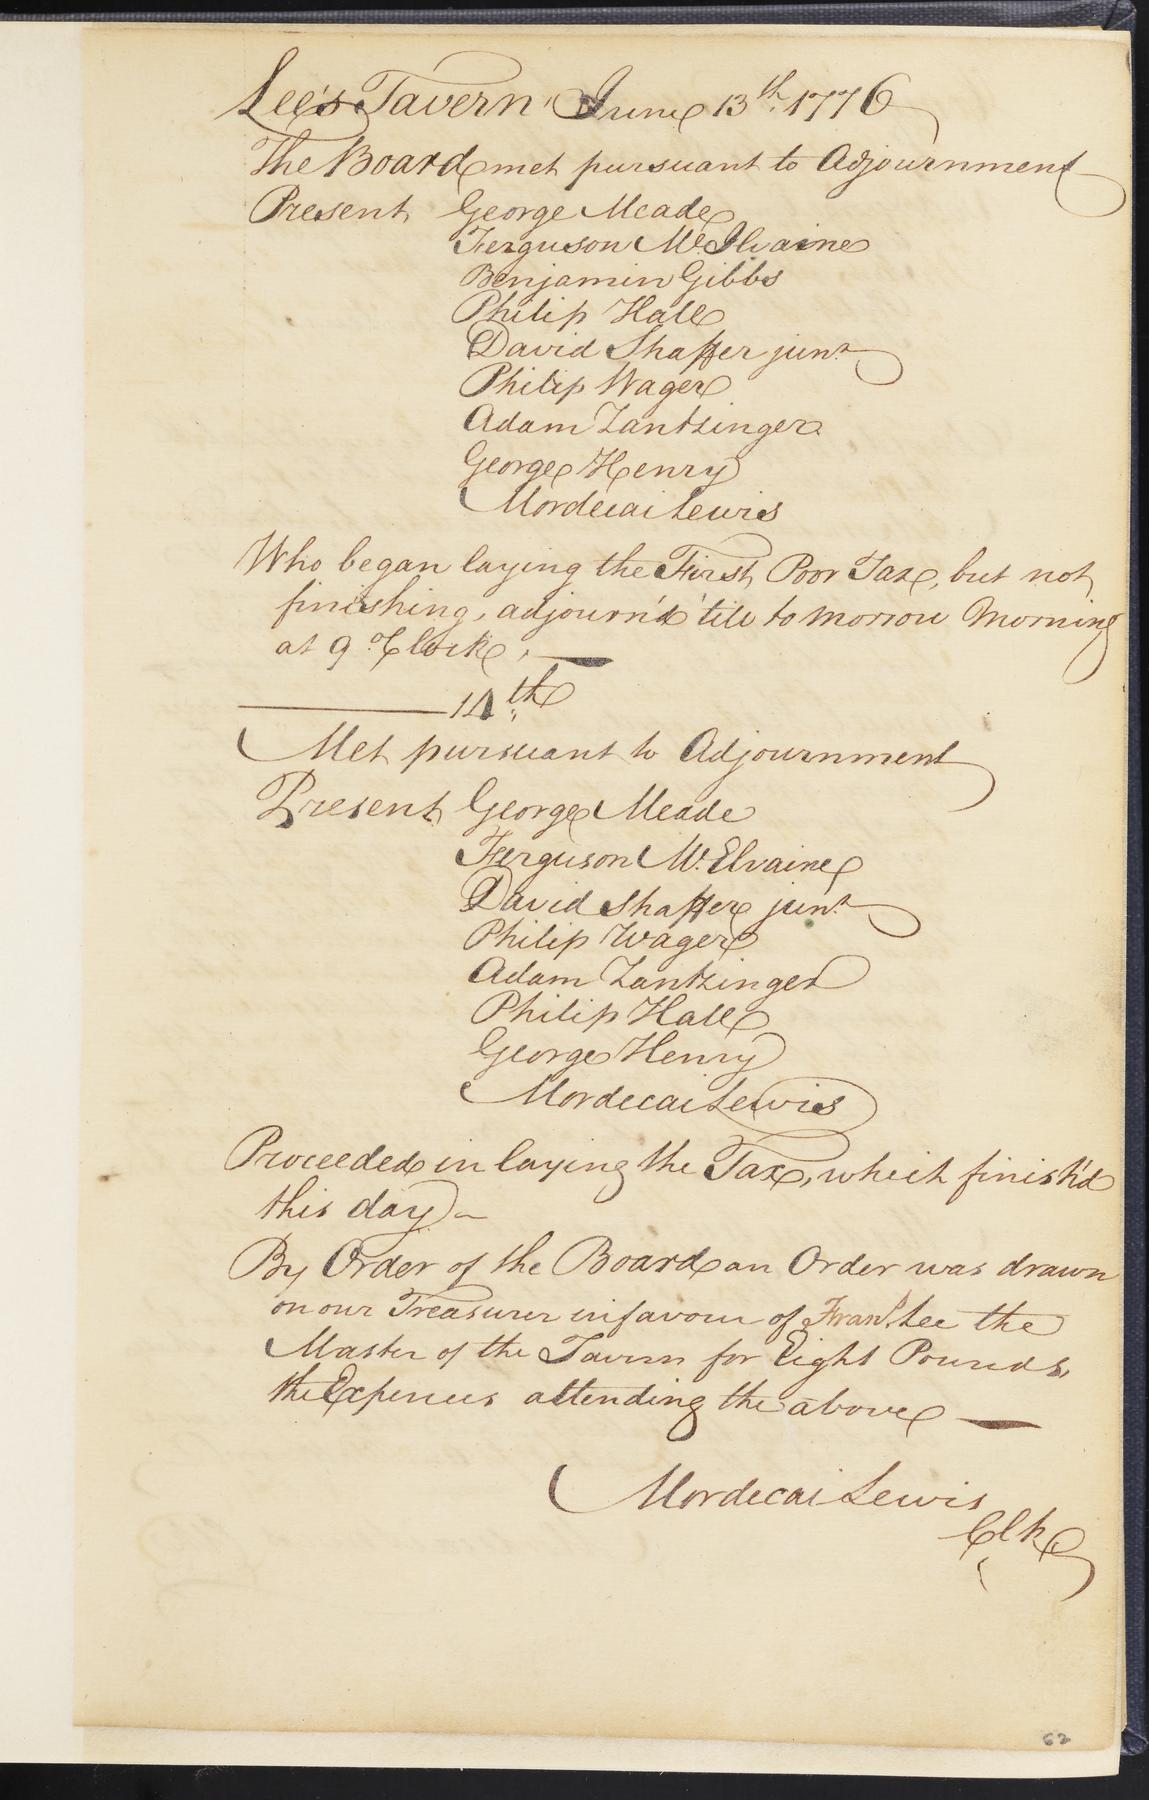 Lee's Tavern June 13th. 1776
The Board met pursuant to Adjournment
Present George Meade
Ferguson Mc.Ilvaine
Benjamin Gibbs
Philip Hall
David Shaffer junr.
Philip Wager
Adam Zantzinger
George Henry
Mordecai Lewis
Who began laying the First Poor Tax, but not
finishing, adjourn'd 'till to morrow Morning
at 9 o'Clock, —
——— 14th
Met pursuant to Adjournment
Present George Meade
Ferguson Mc. Elvaine
David Shaffer junr.
Philip Wager
Adam Zantzinger
Philip Hall
George Henry
Mordecai Lewis
Proceeded in laying the Tax, which finish'd
this day —
By Order of the Board an Order was drawn
on our Treasurer in favour of Frans. Lee the
Master of the Tavern for Eight Pounds,
the Expences attending the above —
Mordecai Lewis
Clk
62